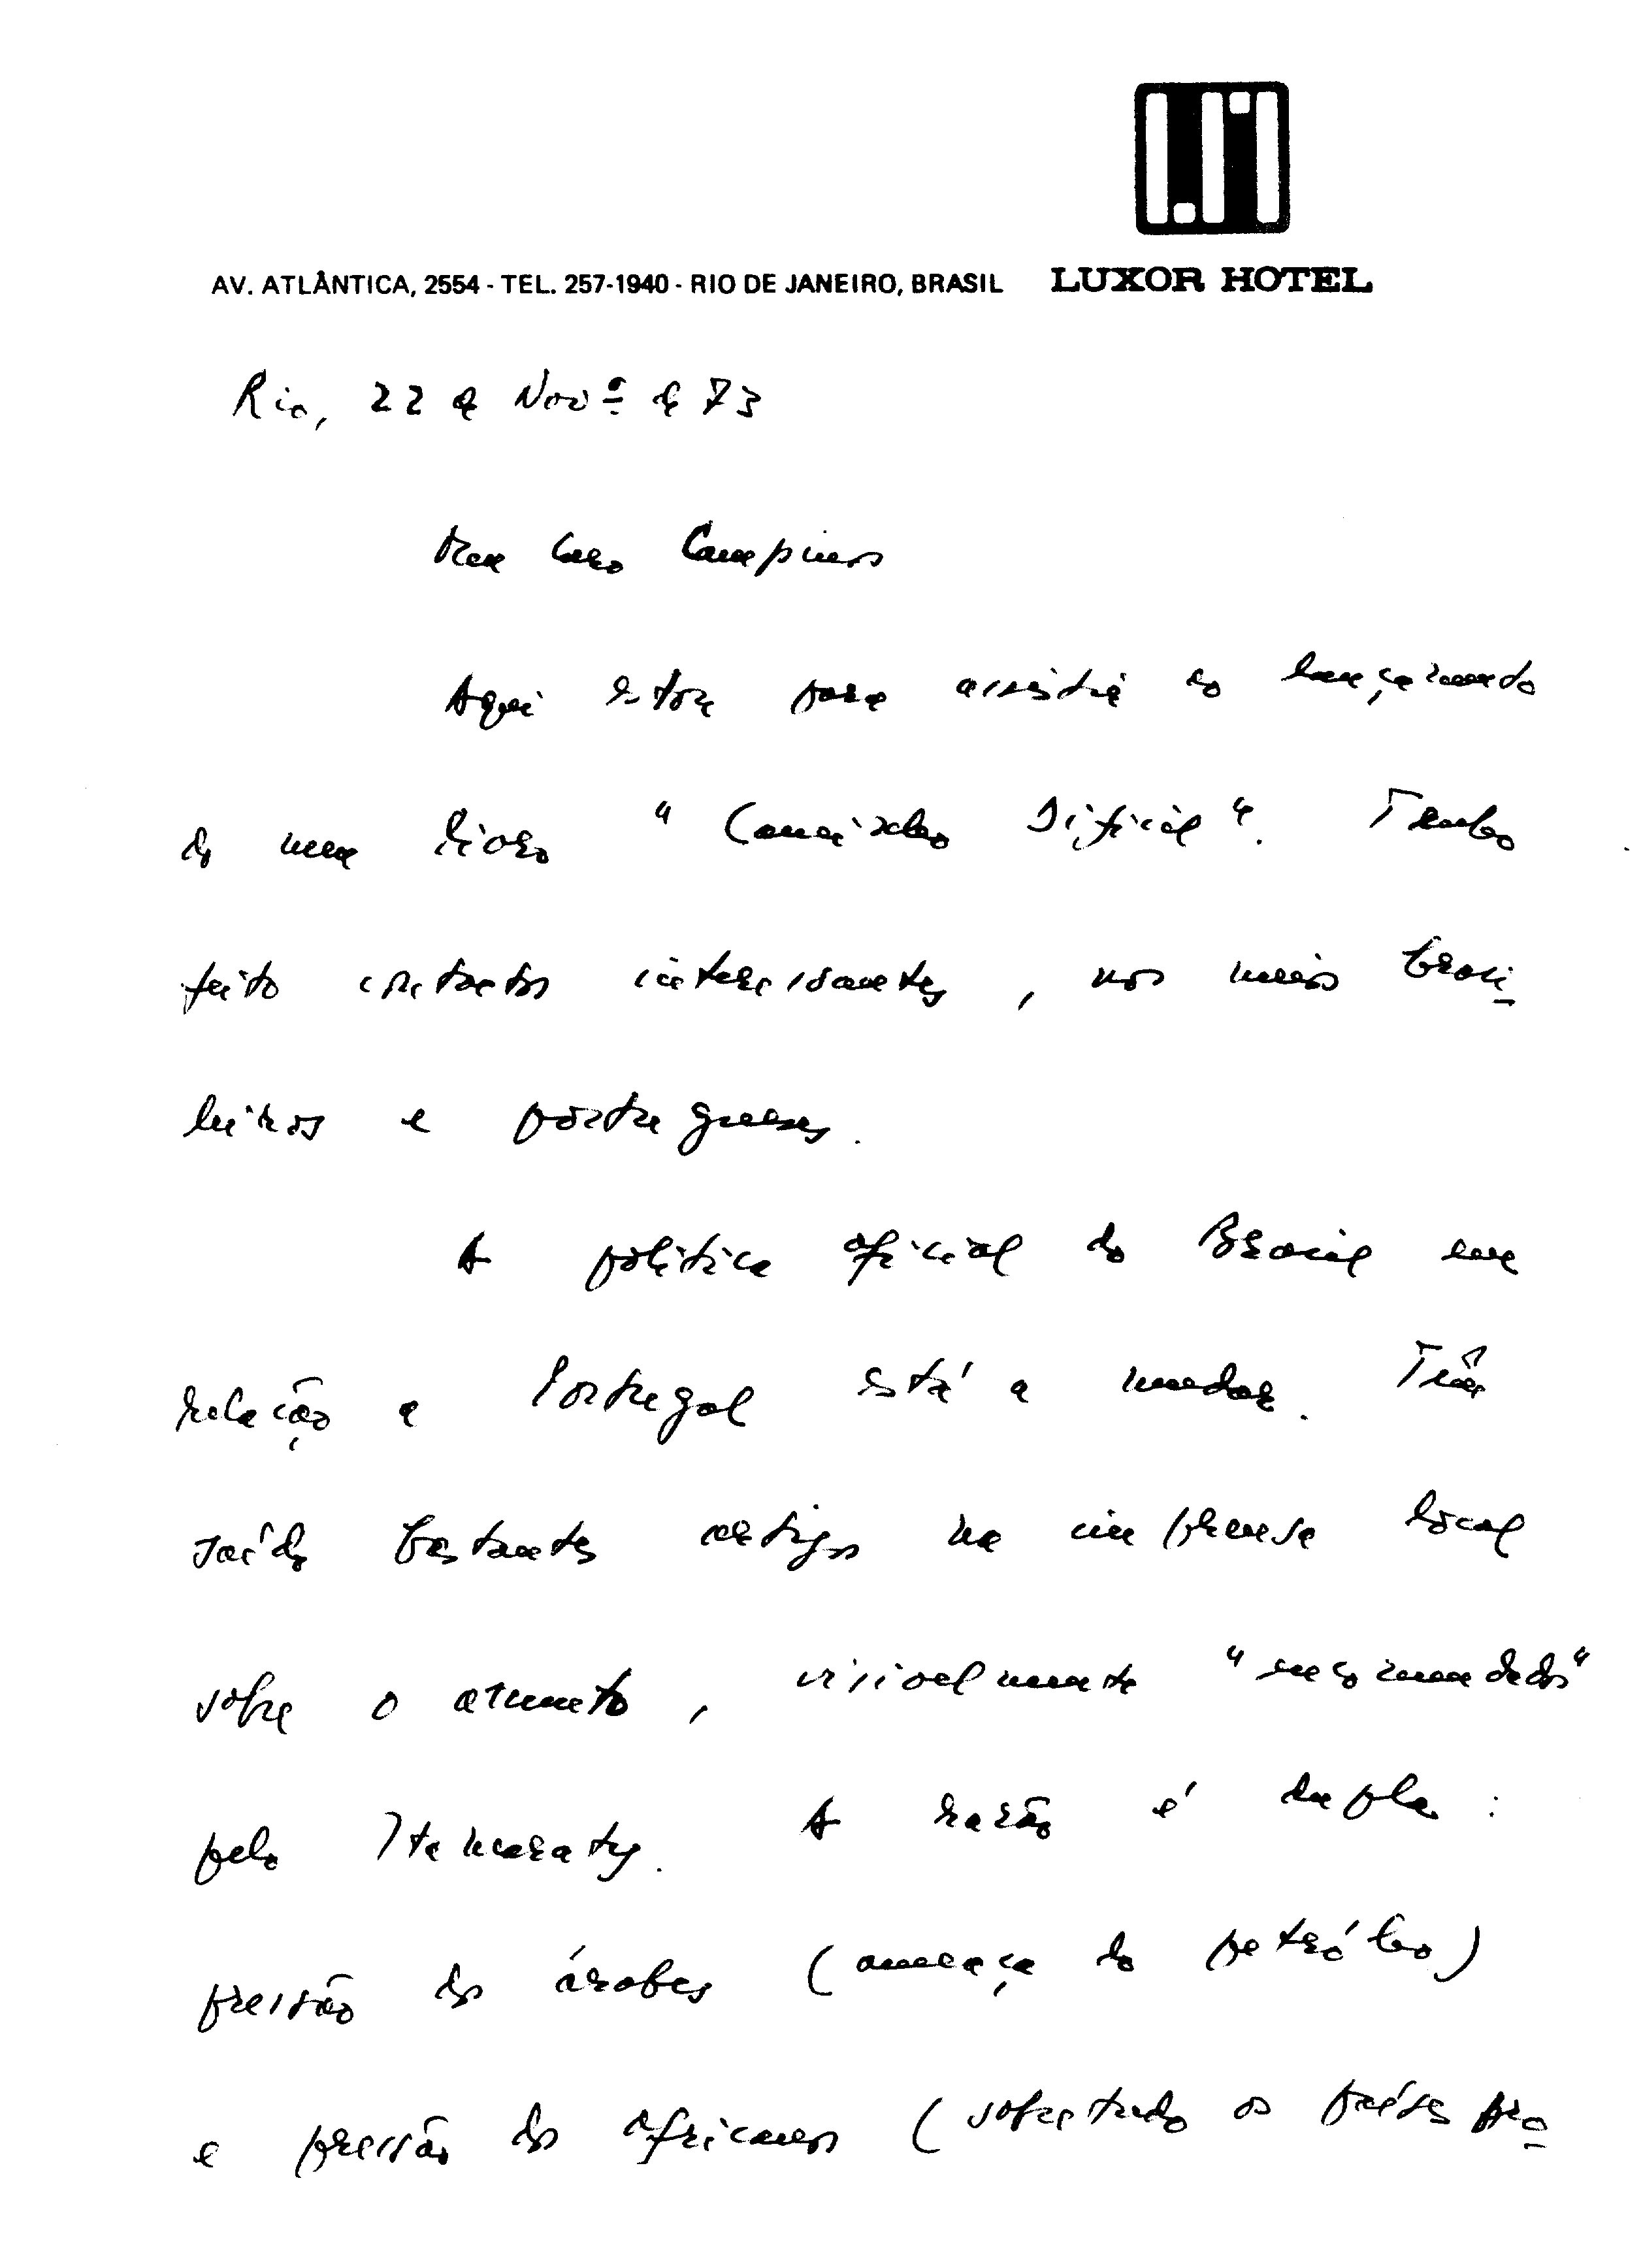 AV. ATLÂNTICA, 2554 - TEL. 257-1940 - RIO DE JANEIRO, BRASIL LUXOR HOTEL
Rio, 22 de Novº de 73
Meu Caro Campinos
Aqui estou para assistir ao lançamento
do meu livro "Caminho Difícil". Tenho
feito contactos interessantes, nos meios brasi-
leiros e portugueses.
A política oficial do Brasil em
relação a Portugal está a mudar. Têm
saído bastantes artigos na imprensa local
sobre o assunto, visivelmente "encomendados"
pelo Itamaraty. A razão é dupla:
pressão dos árabes (ameaça do petróleo)
e pressão dos africanos (sobretudo os países pro-